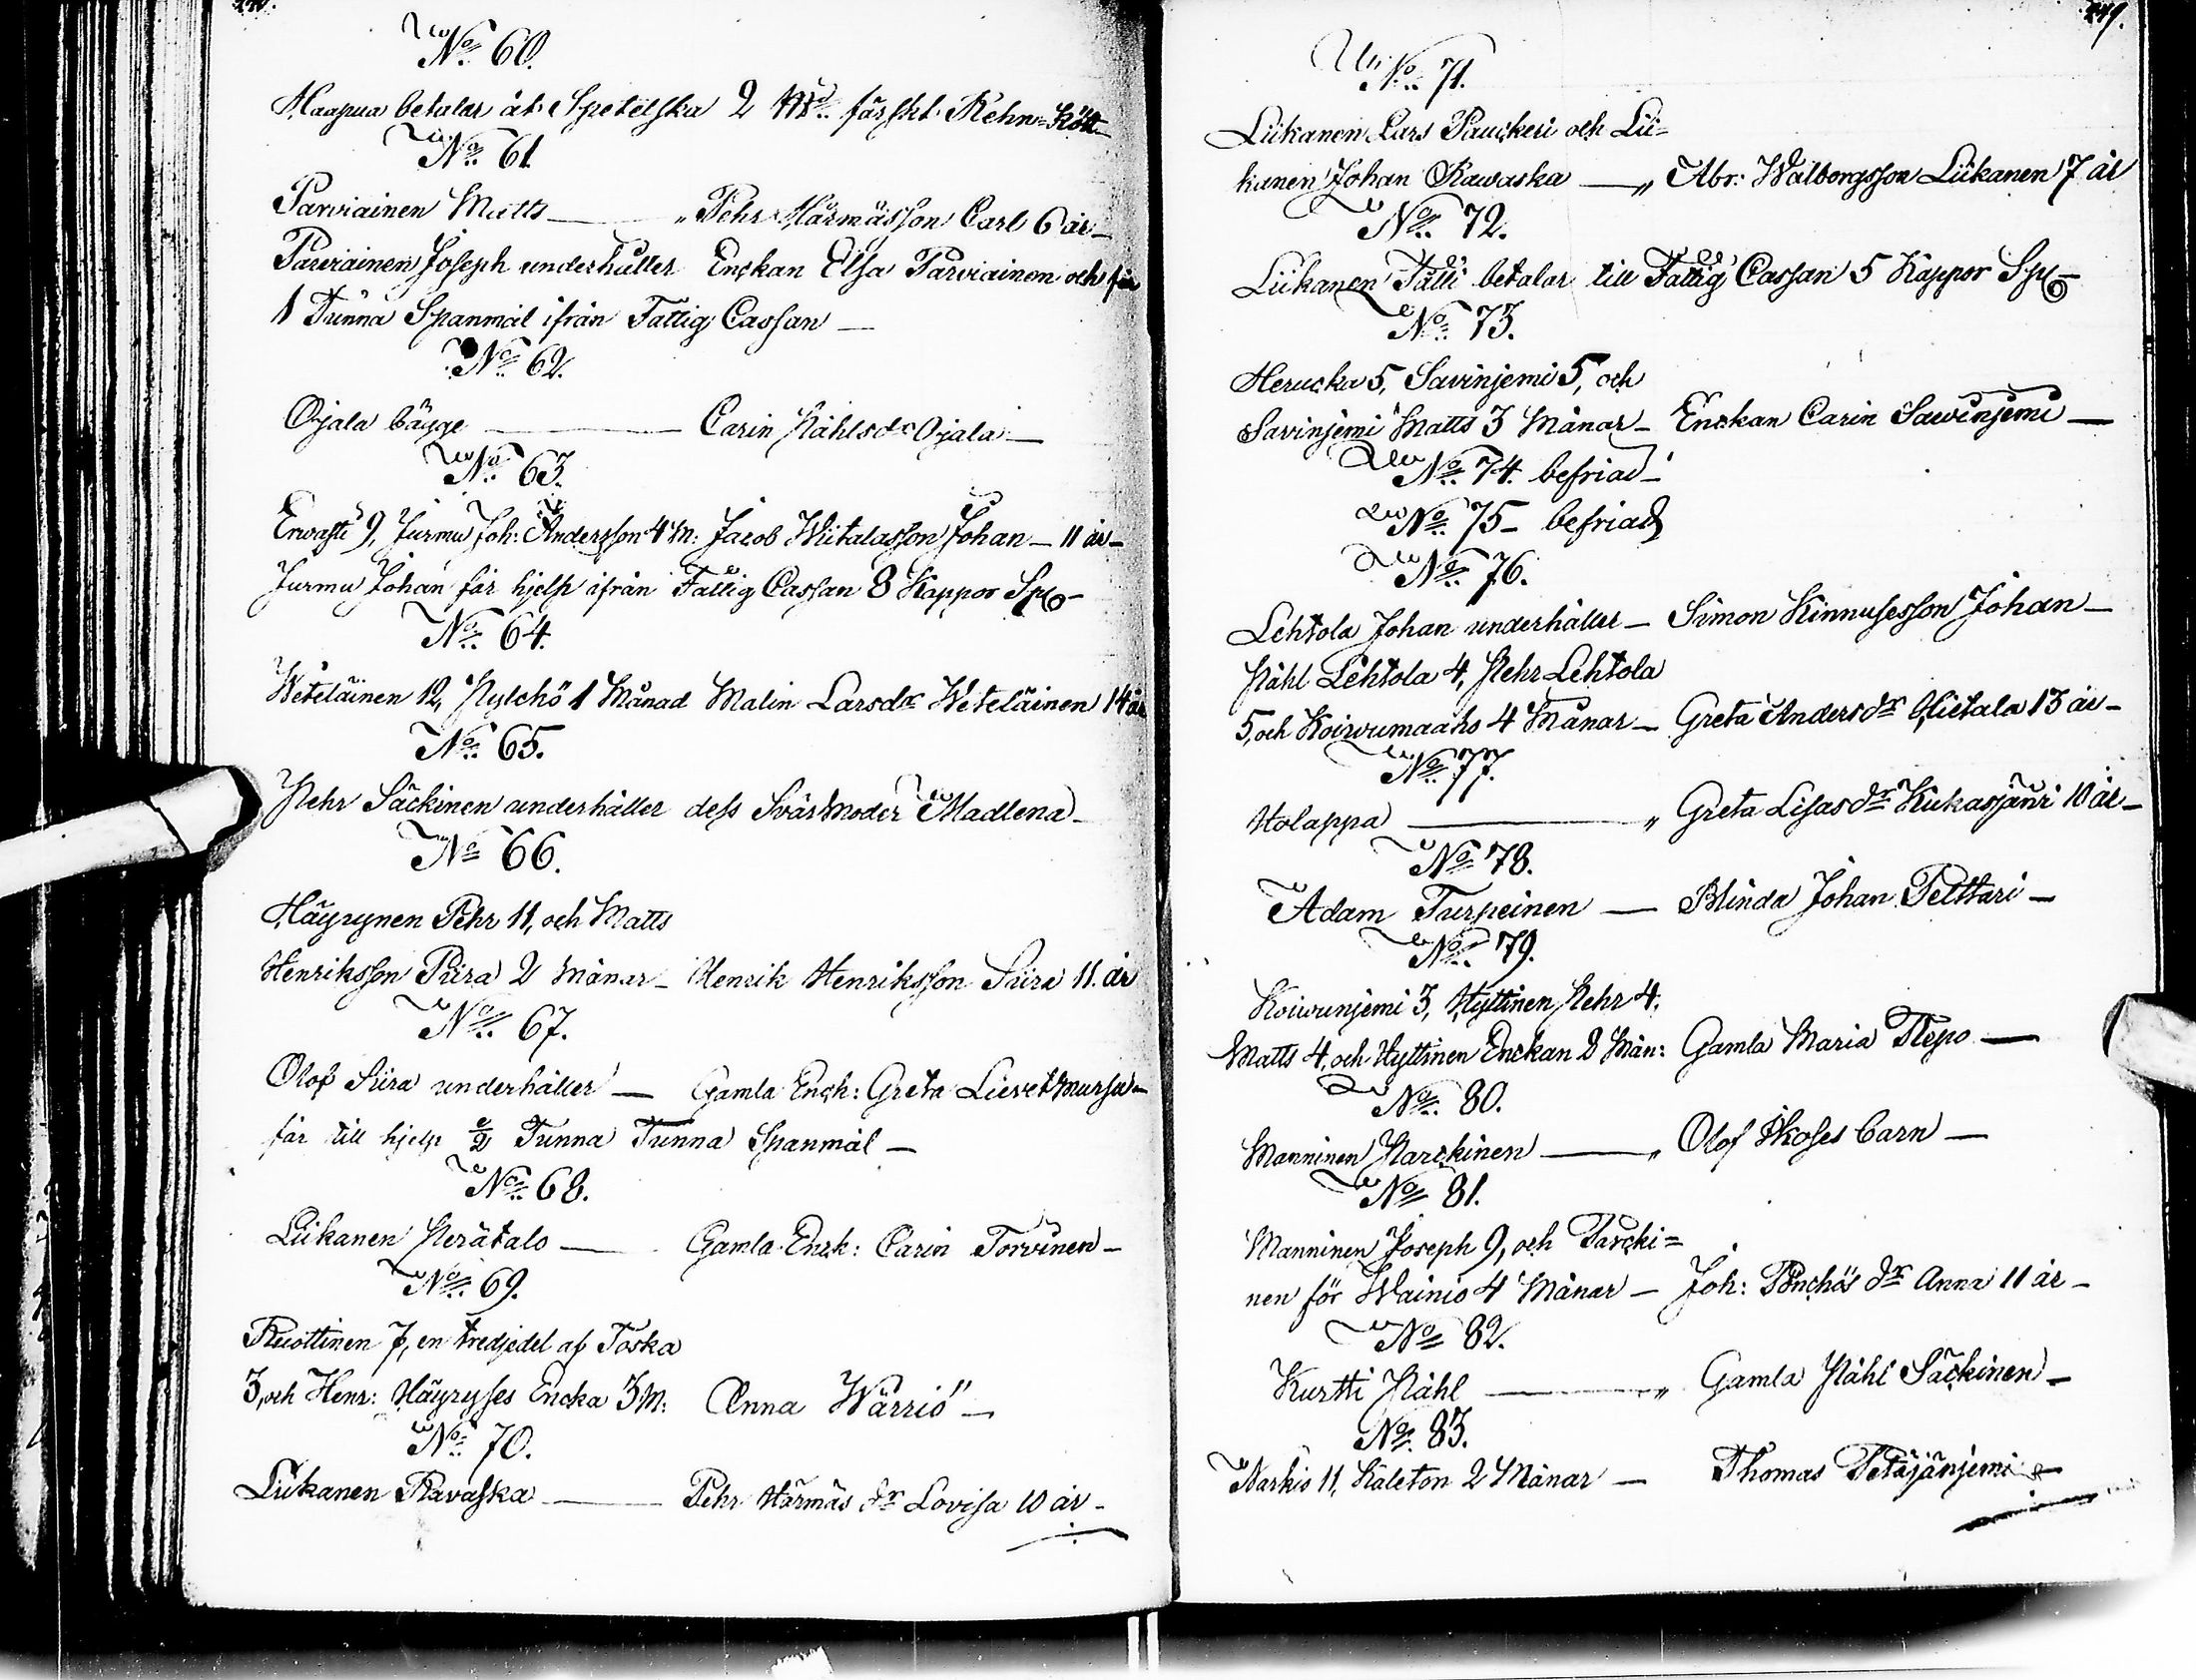 No 60.
Haapua betalar åt Spetelska 2 färskt Rehn=Kött
No 61.
Parviainen Matts — „ Pehr Härmässon Carl 6 år —
Parviainen Joseph underhåller Enckan Elsa Parviainen och får
1 Tunna Spanmål ifrån Fattig Cassan —
No 62.
Ojala bägge — Carin Påhlsdr Ojala —
No 63.
Erwasti 9, Jurmu Joh: Andersson 4 M: Jacob Wiitalasson Johan — 11 år —
Jurmu Johan får hjelp ifrån Fattig Cassan 8 Kappor Sp
No 64.
Weteläinen 12, Pylchö 1 Månad Malin Larsdr Weteläinen 14 år
No 65.
Pehr Säckinen underhåller dess Svärmoder Madlena —
No 66.
Häyrynen Pehr 11, och Matts
Henriksson Piira 2 Månar — Henrik Henriksson Siira 11. år
No 67.
Olof Siira underhåller — Gamla Enck: Greta Lievetmursa —
får till hjelp ½ Tunna Tunna Spanmål —
No 68.
Liikanen Perätalo — Gamla Enck: Carin Torvinen —
No 69.
Ruottinen 7, en tredjedel af Toska
3, och Henr: Häyryses Encka 3 M: Anna Wärriö —
No 70.
Liikanen Ravaska — Pehr Härmäs dr Lovisa 10 år —
249.
No 71.
Liikanen Lars Pauckeri och Lii=
kanen Johan Rawaska — „ Abr: Walborgsson Liikanen 7 år
No 72.
Liikanen Fälli betalar till Fattig Cassan 5 Kappor Sp
No 73.
Herucka 5, Savinjemi 5, och
Savinjemi Matts 3 Månar — Enckan Carin Sawinjemi —
No 74. befriad
No 75 — befriad
No 76.
Lehtola Johan underhåller — Simon Kinnusesson Johan —
Påhl Lehtola 4, Pehr Lehtola
5, och Koiwumaaho 4 Månar — Greta Anders dr Hietala 13 år —
No 77.
Holappa — „ Greta Lisas dr Kukasjärvi 10 år —
No 78.
Adam Turpeinen — Blinda Johan Pelttari —
No 79.
Koiwunjemi 3, Hyttinen Pehr 4,
Matts 4, och Hyttinen Enckan 2 Mån: Gamla Maria Repo —
No 80.
Manninen Parckinen — „ Olof Skoses barn —
No 81.
Manninen Joseph 9, och Parcki=
nen för Wainio 4 Månar — Joh: Pönchös dr Anna 11 år —
No 82.
Kurtti Påhl — „ Gamla Påhl Säckinen —
No 83.
Narkis 11, Käleton 2 Månar — Thomas Petäjänjemi —